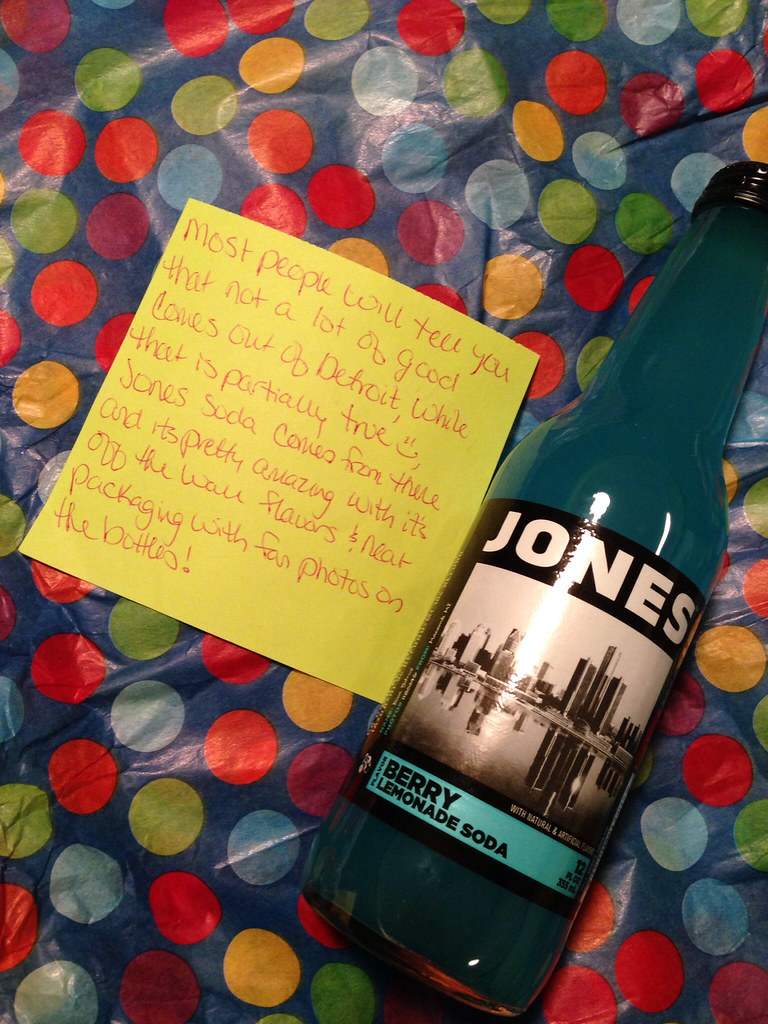 Most people will tell you
that not a lot of good
comes out of Detroit, while
that is partially true :),
Jones Soda comes from there
and its pretty amazing with its
off the wall flavors & neat
packaging with fan photos on
the bottles!
JONES
FLAVOR
BERRY
LEMONADE SODA
WITH NATURAL & ARTIFICIAL
12
FL OZ
355